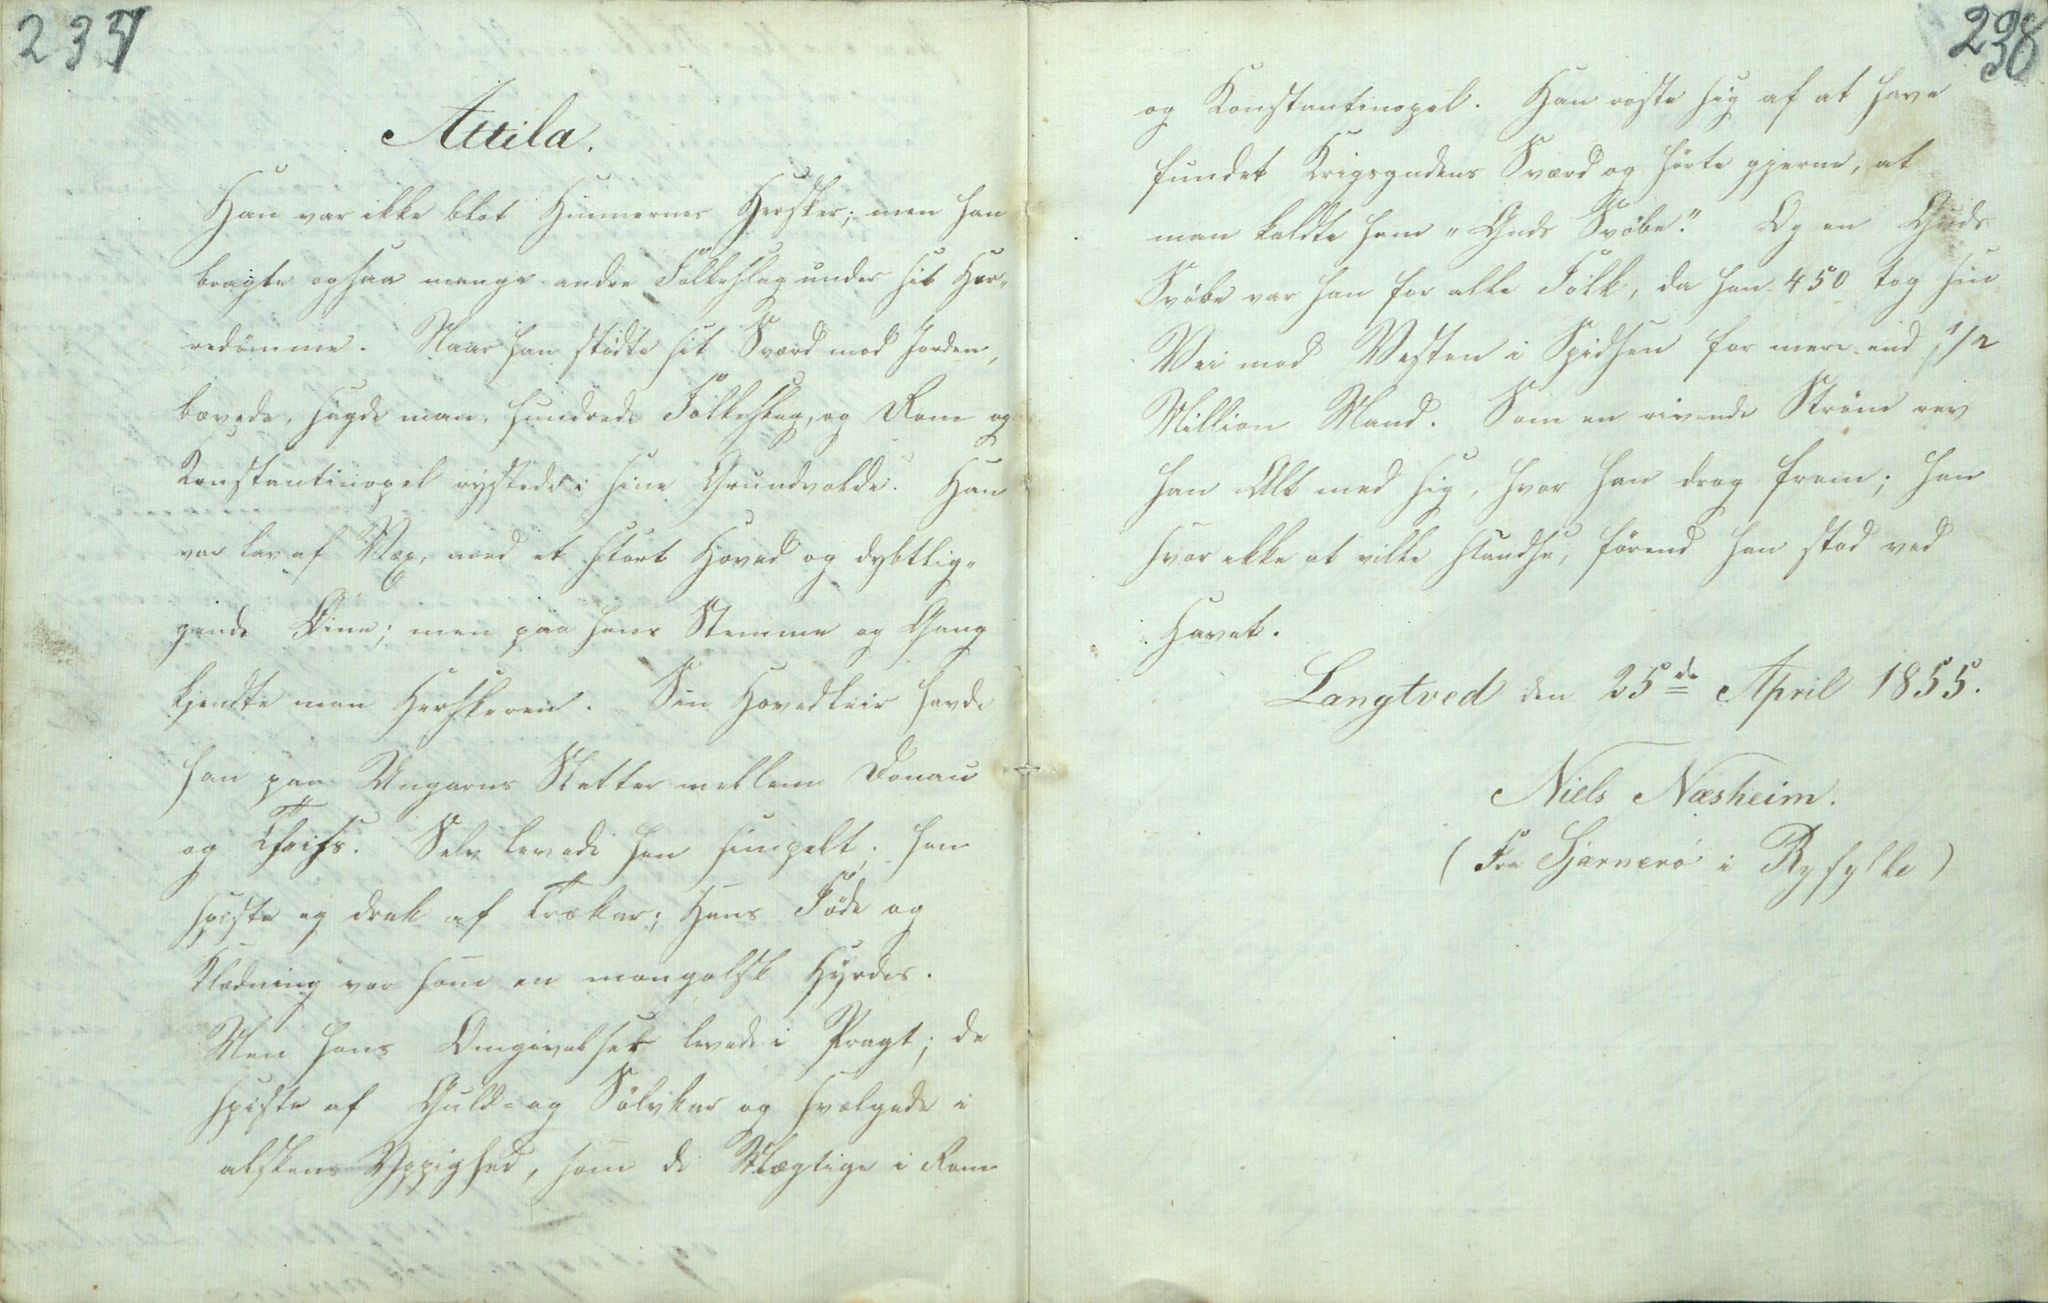 237
Attila.
Han var ikke blot Hunnernes Hersker; men han
bragte ogsaa mange andre Folkeslag under sit Her-
redømme. Naar han stødte sit Sværd mod Jorden,
bævede, sagde man, hundrede Folkeslag, og Rom og
Konstantinopel rystede i sine Grundvolde. Han
var lav af Væx, med et stort Hoved og dybtlig-
gende Øine; men paa hans Stemme og Gang
kjendte man Herskeren. Sin Hovedleir havde
han paa Ungarns Sletter mellem Donau
og Theiss. Selv levede han simpelt; han
spiste og drak af Trækar; Hans Føde og
Klædning var som en mongolsk Hyrdes.
Men hans Omgivelser levede i Pragt; de
spiste af Guld- og Sølvkar og svælgede i
alskens Yppighed, som de Mægtige i Rom
238
og Konstantinopel. Han roste sig af at have
fundet Krigsgudens Sværd og hørte gjerne, at
man kaldte ham "Guds Svøbe." Og en Guds
Svøbe var han for alle Folk, da han 450 tog sin
Vei mod Vesten i Spidsen for mere end 1/2
Million Mand. Som en rivende Strøm rev
han Alt med sig, hvor han drog frem; han
svor ikke at ville standse, førend han stod ved
Havet.
Langtved den 25de April 1855.
Niels Næsheim.
(Fra Sjærnerø i Ryfylke)